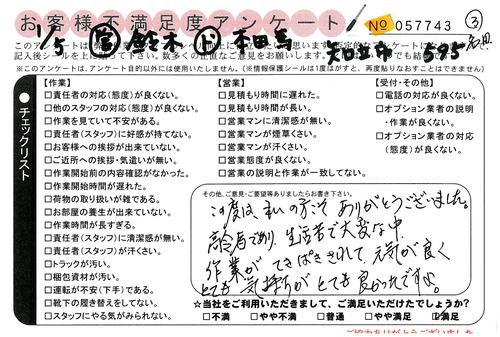 お客様不満足度アンケート
No 057743
③
1/5 営 鈴木 ド 本田馬 595
※このアンケートは、アンケート目的以外には使用いたしません。(※情報保護シールは1度はがすと、再度貼りなおすことはできません)
チェックリスト
【作業】
□責任者の対応(態度)が良くない。
□他のスタッフの対応(態度)が良くない。
□作業を見ていて不安がある。
□責任者(スタッフ)に好感が持てない。
□お客様への挨拶が出来ていない。
□ご近所への挨拶・気遣いが無い。
□作業開始前の内容確認がなかった。
□作業開始時間が遅れた。
□荷物の取り扱いが雑である。
□お部屋の養生が出来ていない。
□作業時間が長すぎる。
□責任者(スタッフ)に清潔感が無い。
□責任者(スタッフ)が汗くさい。
□トラックが汚い。
□梱包資材が汚い。
□運転が不安(下手)である。
□靴下の履き替えをしてない。
□スタッフにやる気がみられない。
【営業】
□見積もり時間に遅れた。
□見積もり時間が長い。
□営業マンに清潔感が無い。
□営業マンが煙草くさい。
□営業マンが汗くさい。
□営業態度が良くない。
□営業の説明と作業が一致してない。
【受付・その他】
□電話の対応が良くない。
□オプション業者の説明
・作業が良くない。
□オプション業者の対応
(態度)が良くない。
その他、ご意見・ご要望等ありましたらお書き下さい。
この度は、私の方こそ ありがとうございました。
高齢であり、生活苦で大変な中
作業が てきぱきされて 元気が良く
とても 気持ちが とても 良かったですよ。
☆当社をご利用いただきまして、ご満足いただけたでしょうか?
□不満 □やや不満 □普通 □やや満足 ☑満足
ご協力ありがとうございました